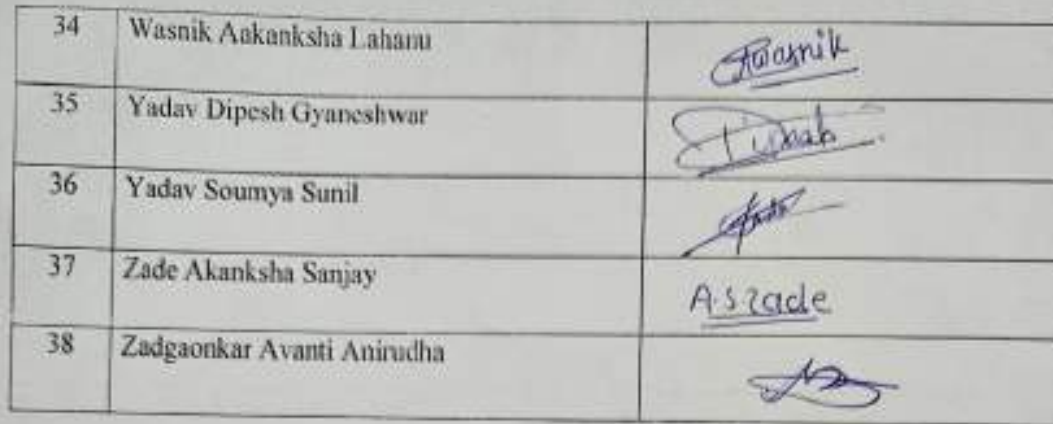 34 Wasnik Aakanksha Lahanu Awasnik
35 Yadav Dipesh Gyaneshwar
36 Yadav Soumya Sunil
37 Zade Akanksha Sanjay A.S zade
38 Zadgaonkar Avanti Anirudha